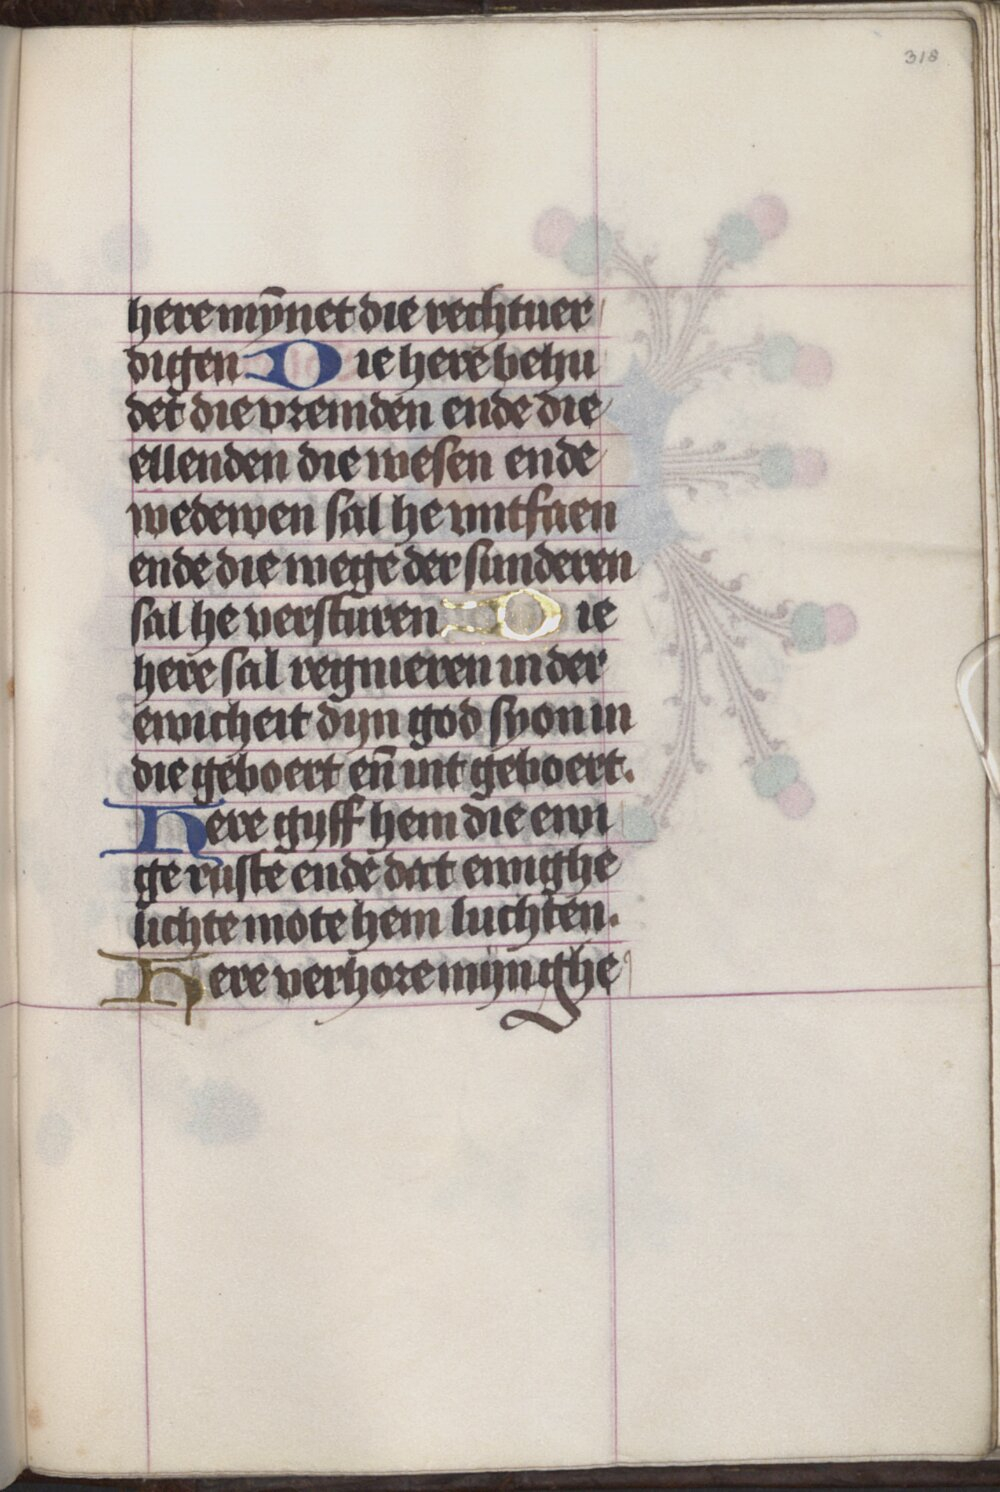 318
here mȳnet die rechtuer
digen Die here behu
det die vremden ende die
ellenden die wesen ende
wedewen sal he untfaen
ende die wege der sunderen
sal he versturen Die
here sal regnieren in der
ewicheit dijn god syon in
die geboert en̄ int geboert.
Here gyff hem die ewi
ge ruste ende dat ewighe
lichte mote hem luchten.
Here verhore mijn ghe